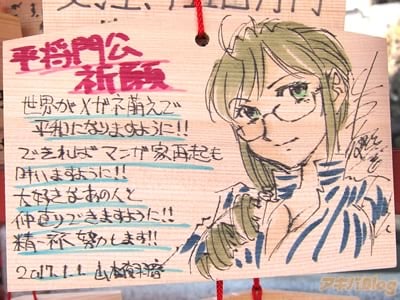 平将門公
祈願
世界がメガネ萌えで
平和になりますように!!
できればマンガ家再起も
叶いますように!!
大好きなあの人と
仲直りできますように!!
精一杯努力します!!
2017.1.1
アキバBlog